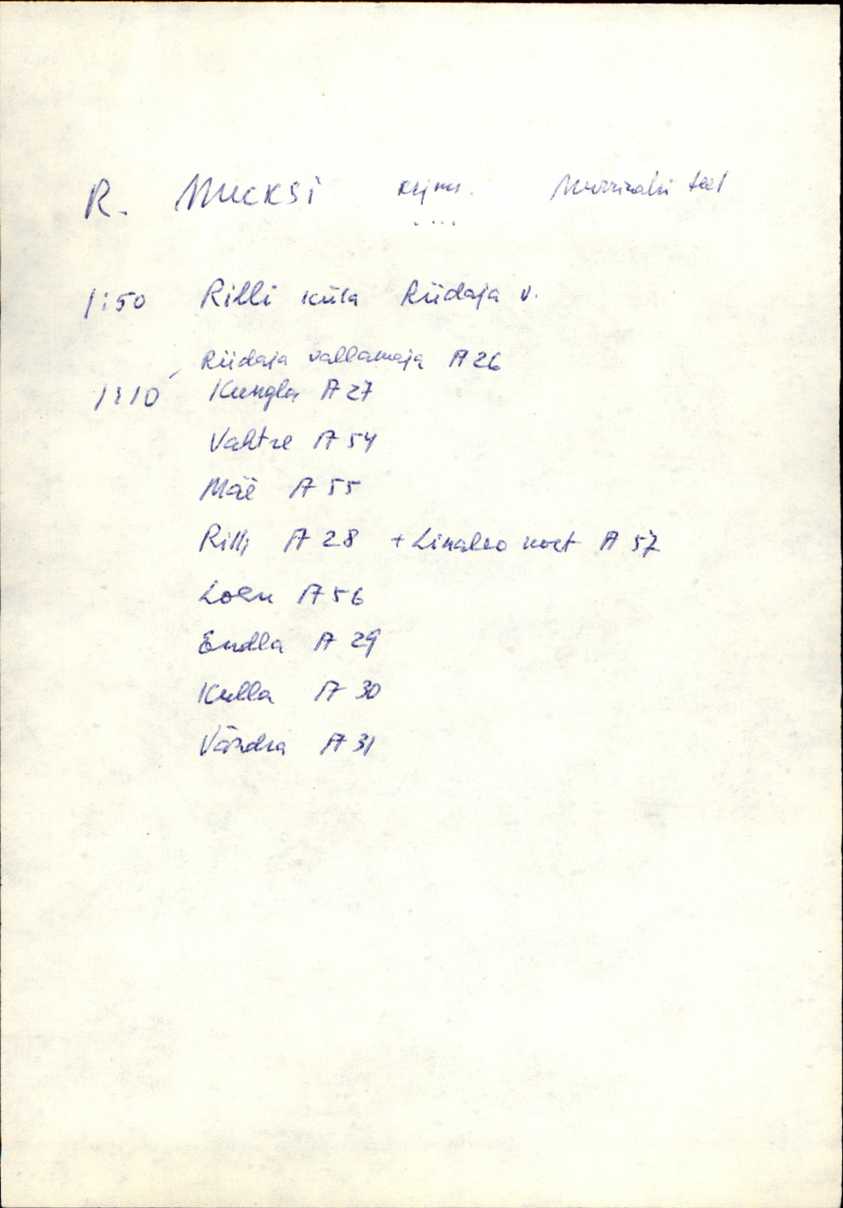 R. Mucksi
1:50 Rilli küla Riidaja v.
Riidaja vallamaja A 26
1:10 Kungla A 27
Vahtre A 54
Mäe A 55
Rilli A 28 + Linaleo A 57
A 56
Endla A 29
Kulla A 30
Vändra A 31